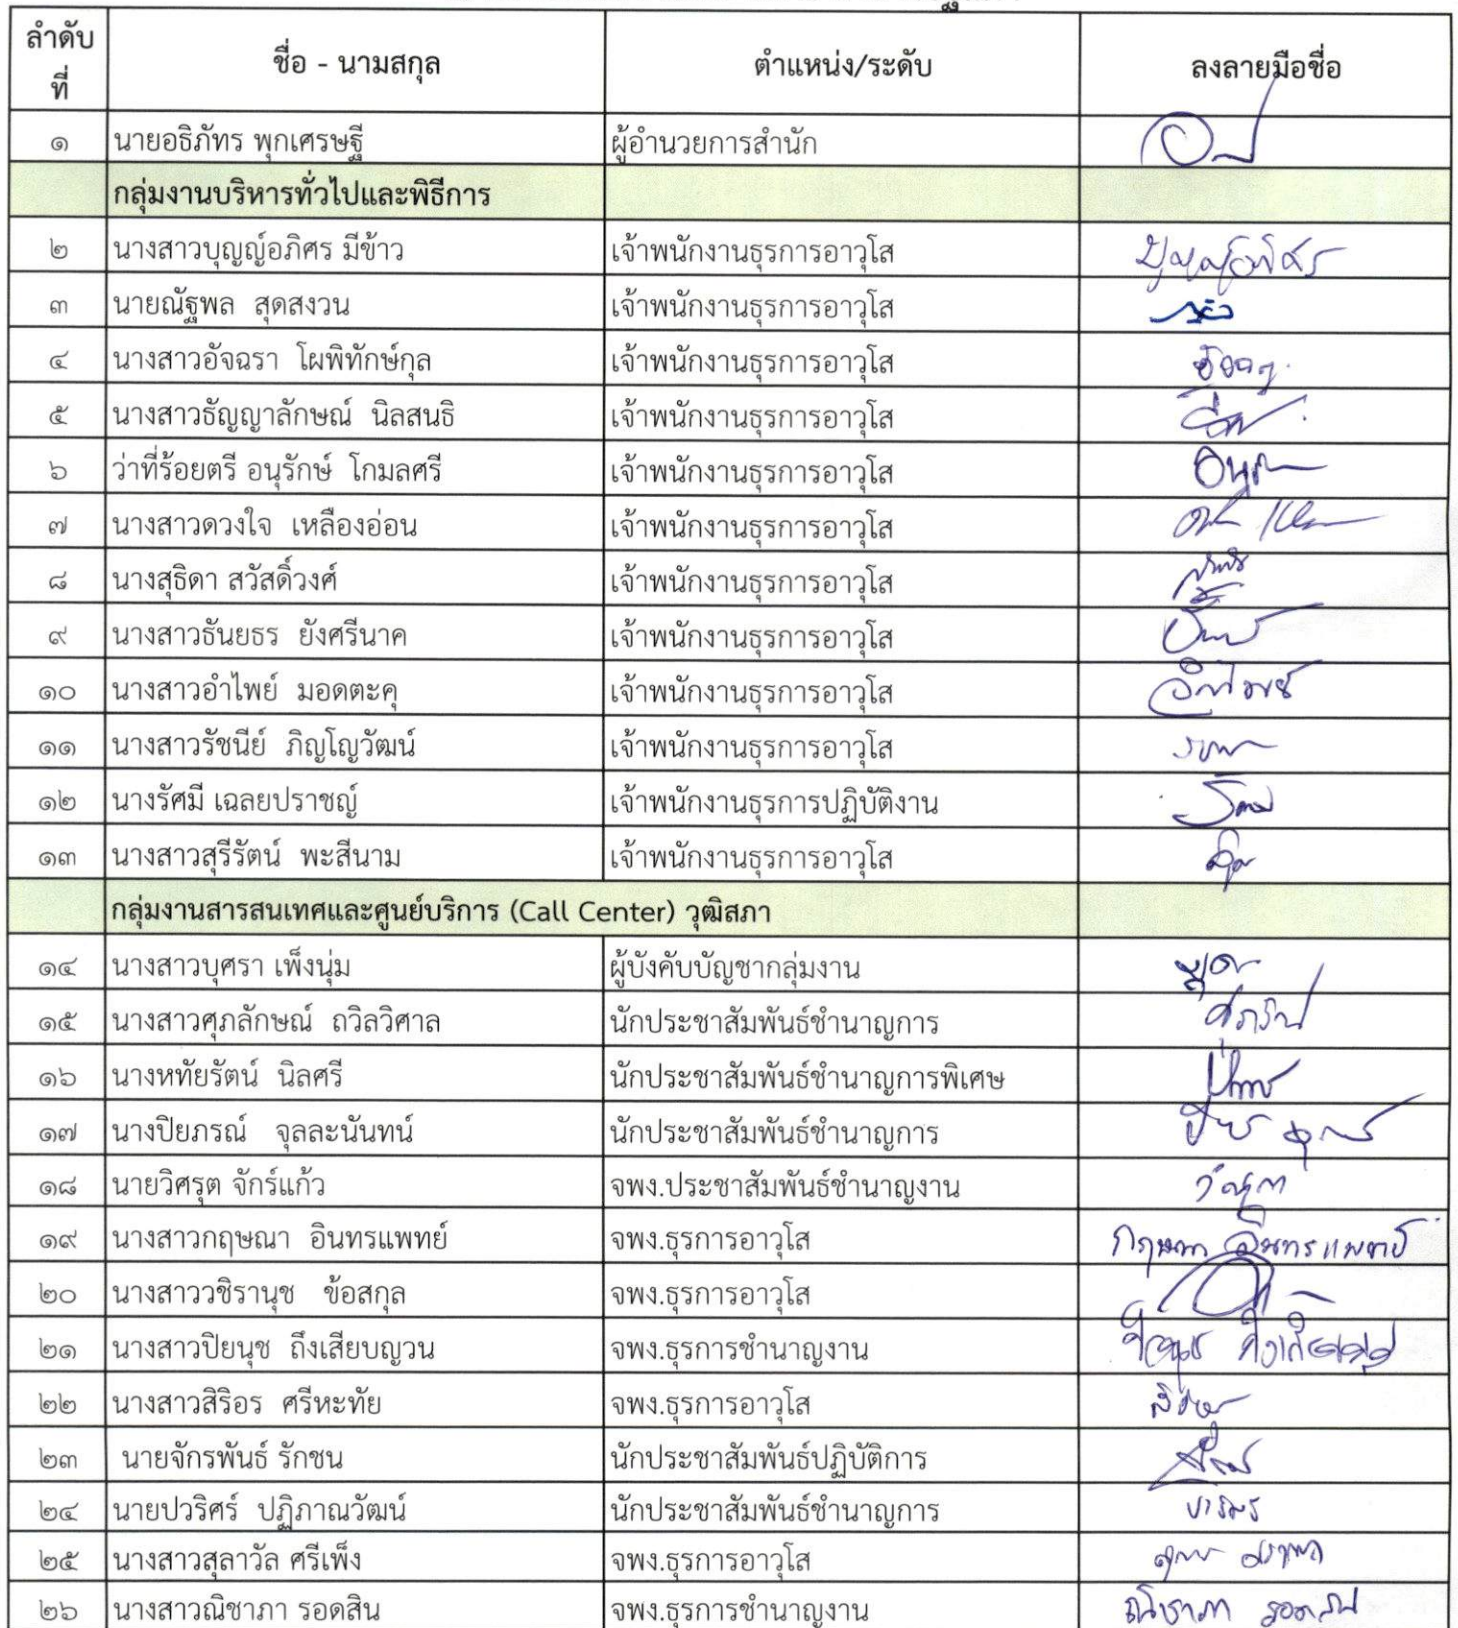 ลำดับที่ ชื่อ - นามสกุล ตำแหน่ง/ระดับ ลงลายมือชื่อ
๑ นายอธิภัทร พุกเศรษฐี ผู้อำนวยการสำนัก
กลุ่มงานบริหารทั่วไปและพิธีการ
๒ นางสาวบุญญ์อภิศร มีข้าว เจ้าพนักงานธุรการอาวุโส บุญญ์อภิศร
๓ นายณัฐพล สุดสงวน เจ้าพนักงานธุรการอาวุโส
๔ นางสาวอัจฉรา โผพิทักษ์กุล เจ้าพนักงานธุรการอาวุโส
๕ นางสาวธัญญาลักษณ์ นิลสนธิ เจ้าพนักงานธุรการอาวุโส
๖ ว่าที่ร้อยตรี อนุรักษ์ โกมลศรี เจ้าพนักงานธุรการอาวุโส
๗ นางสาวดวงใจ เหลืองอ่อน เจ้าพนักงานธุรการอาวุโส
๘ นางสุธิดา สวัสดิ์วงศ์ เจ้าพนักงานธุรการอาวุโส
๙ นางสาวธันยธร ยังศรีนาค เจ้าพนักงานธุรการอาวุโส
๑๐ นางสาวอำไพย์ มอดตะคุ เจ้าพนักงานธุรการอาวุโส อำไพย์
๑๑ นางสาวรัชนีย์ ภิญโญวัฒน์ เจ้าพนักงานธุรการอาวุโส
๑๒ นางรัศมี เฉลยปราชญ์ เจ้าพนักงานธุรการปฏิบัติงาน
๑๓ นางสาวสุรีรัตน์ พะสีนาม เจ้าพนักงานธุรการอาวุโส
กลุ่มงานสารสนเทศและศูนย์บริการ (Call Center) วุฒิสภา
๑๔ นางสาวบุศรา เพ็งนุ่ม ผู้บังคับบัญชากลุ่มงาน
๑๕ นางสาวศุภลักษณ์ ถวิลวิศาล นักประชาสัมพันธ์ชำนาญการ
๑๖ นางหทัยรัตน์ นิลศรี นักประชาสัมพันธ์ชำนาญการพิเศษ
๑๗ นางปิยภรณ์ จุลละนันทน์ นักประชาสัมพันธ์ชำนาญการ
๑๘ นายวิศรุต จักร์แก้ว จพง.ประชาสัมพันธ์ชำนาญงาน
๑๙ นางสาวกฤษณา อินทรแพทย์ จพง.ธุรการอาวุโส กฤษณา อินทรแพทย์
๒๐ นางสาววชิรานุช ข้อสกุล จพง.ธุรการอาวุโส
๒๑ นางสาวปิยนุช ถึงเสียบญวน จพง.ธุรการชำนาญงาน ปิยนุช ถึงเสียบญวน
๒๒ นางสาวสิริอร ศรีหะทัย จพง.ธุรการอาวุโส
๒๓ นายจักรพันธ์ รักชน นักประชาสัมพันธ์ปฏิบัติการ
๒๔ นายปวริศร์ ปฏิภาณวัฒน์ นักประชาสัมพันธ์ชำนาญการ
๒๕ นางสาวสุลาวัล ศรีเพ็ง จพง.ธุรการอาวุโส
๒๖ นางสาวณิชาภา รอดสิน จพง.ธุรการชำนาญงาน ณิชาภา รอดสิน